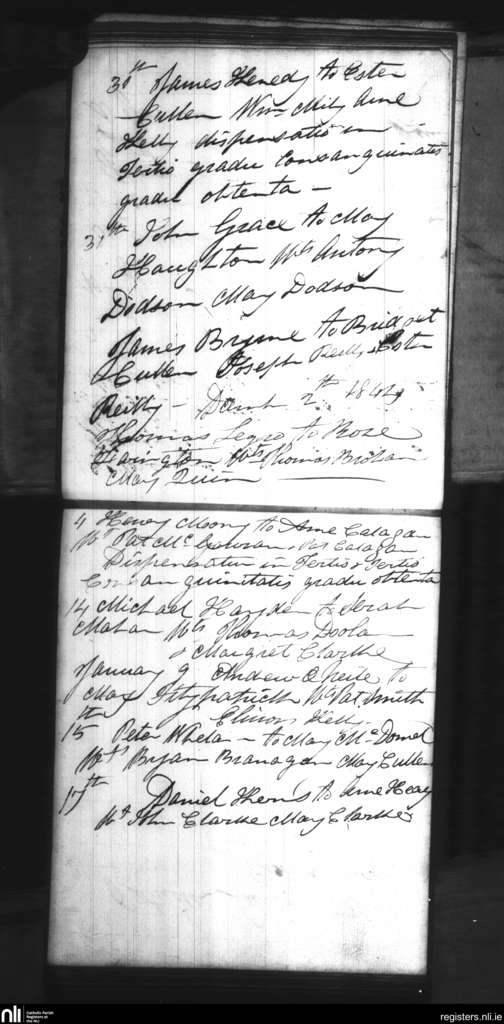 30th James Henedy to Ester
Cullen Wm Mily Anne
Kelly dispensatio in
Tertio gradu Consanguinitatis
gradu obtenta —
31th John Grace to May
Haughton Wts Antony
Dodson May Dodson
James Bryne to Bridget
Cullen Joseph Reilly Ester
Reilly — 2th 1842
Thomas Legro to Rose
Harington Wts Thomas
May Quinn
4 Henry Moony to Anne Calagan
Wt Pat Mc Gowran Pat Calagan
Dispensatio in Tertio & Tertio
Consanguinitatis gradu obtenta
14 Michael Hayden to Serah
Mahan Wts Thomas Doolan
& Margret Clarke
January 9 Andrew O Neile to
May Fitzpatrick Wt Pat Smith
Elinor Kelly
15th Peter Whelan — to May Mc Donnel
Wts Bryan Branagan May Cullen
17th Daniel Kerns to Anne Heay
Wt John Clarke May Clarke
nli Catholic Parish
Registers at
the NLI
registers.nli.ie